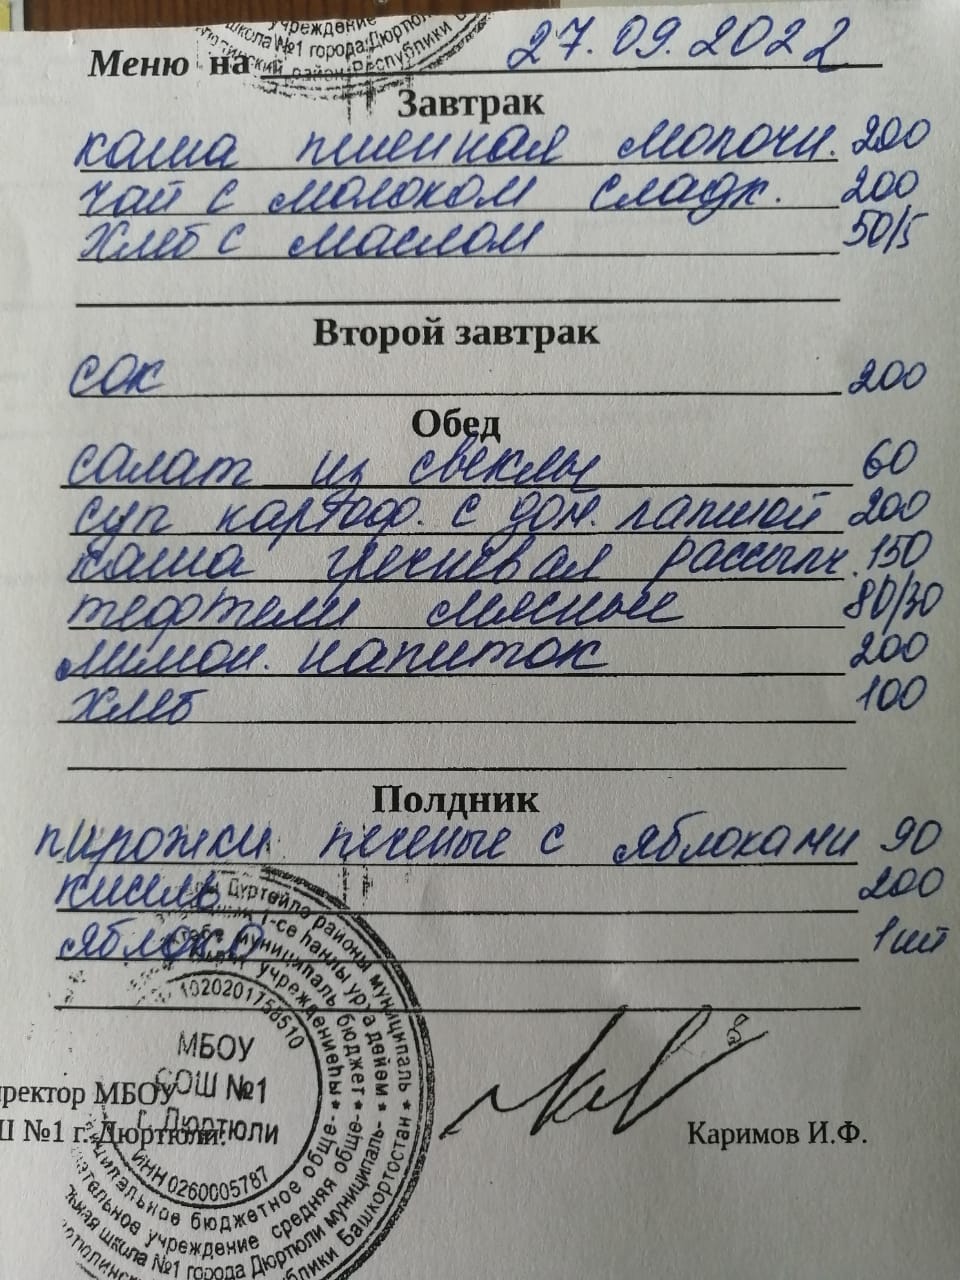 учреждение
школа №1 города Дюртюли
район Республики
Меню на 27.09.2022
Завтрак
каша пшенная молочн. 200
чай с молоком сладк. 200
хлеб с маслом 50/5
Второй завтрак
сок 200
Обед
салат из свеклы 60
суп картоф. с дом. лапшой 200
каша гречневая рассыпч. 150
тефтели мясные 80/30
лимон. напиток 200
хлеб 100
Полдник
пирожки печеные с яблоками 90
кисель 200
яблоко 1шт
Дүртөйлө районы муниципаль
учреждениеһы
1020201758510
МБОУ
СОШ №1
г. Дюртюли
ИНН 0260005787
ректор МБОУ
Ш №1 г. Дюртюли:
Каримов И.Ф.
бюджетное обще-
учреждение средняя обще-
школа №1 города Дюртюли муниципаль-
Башкортостан